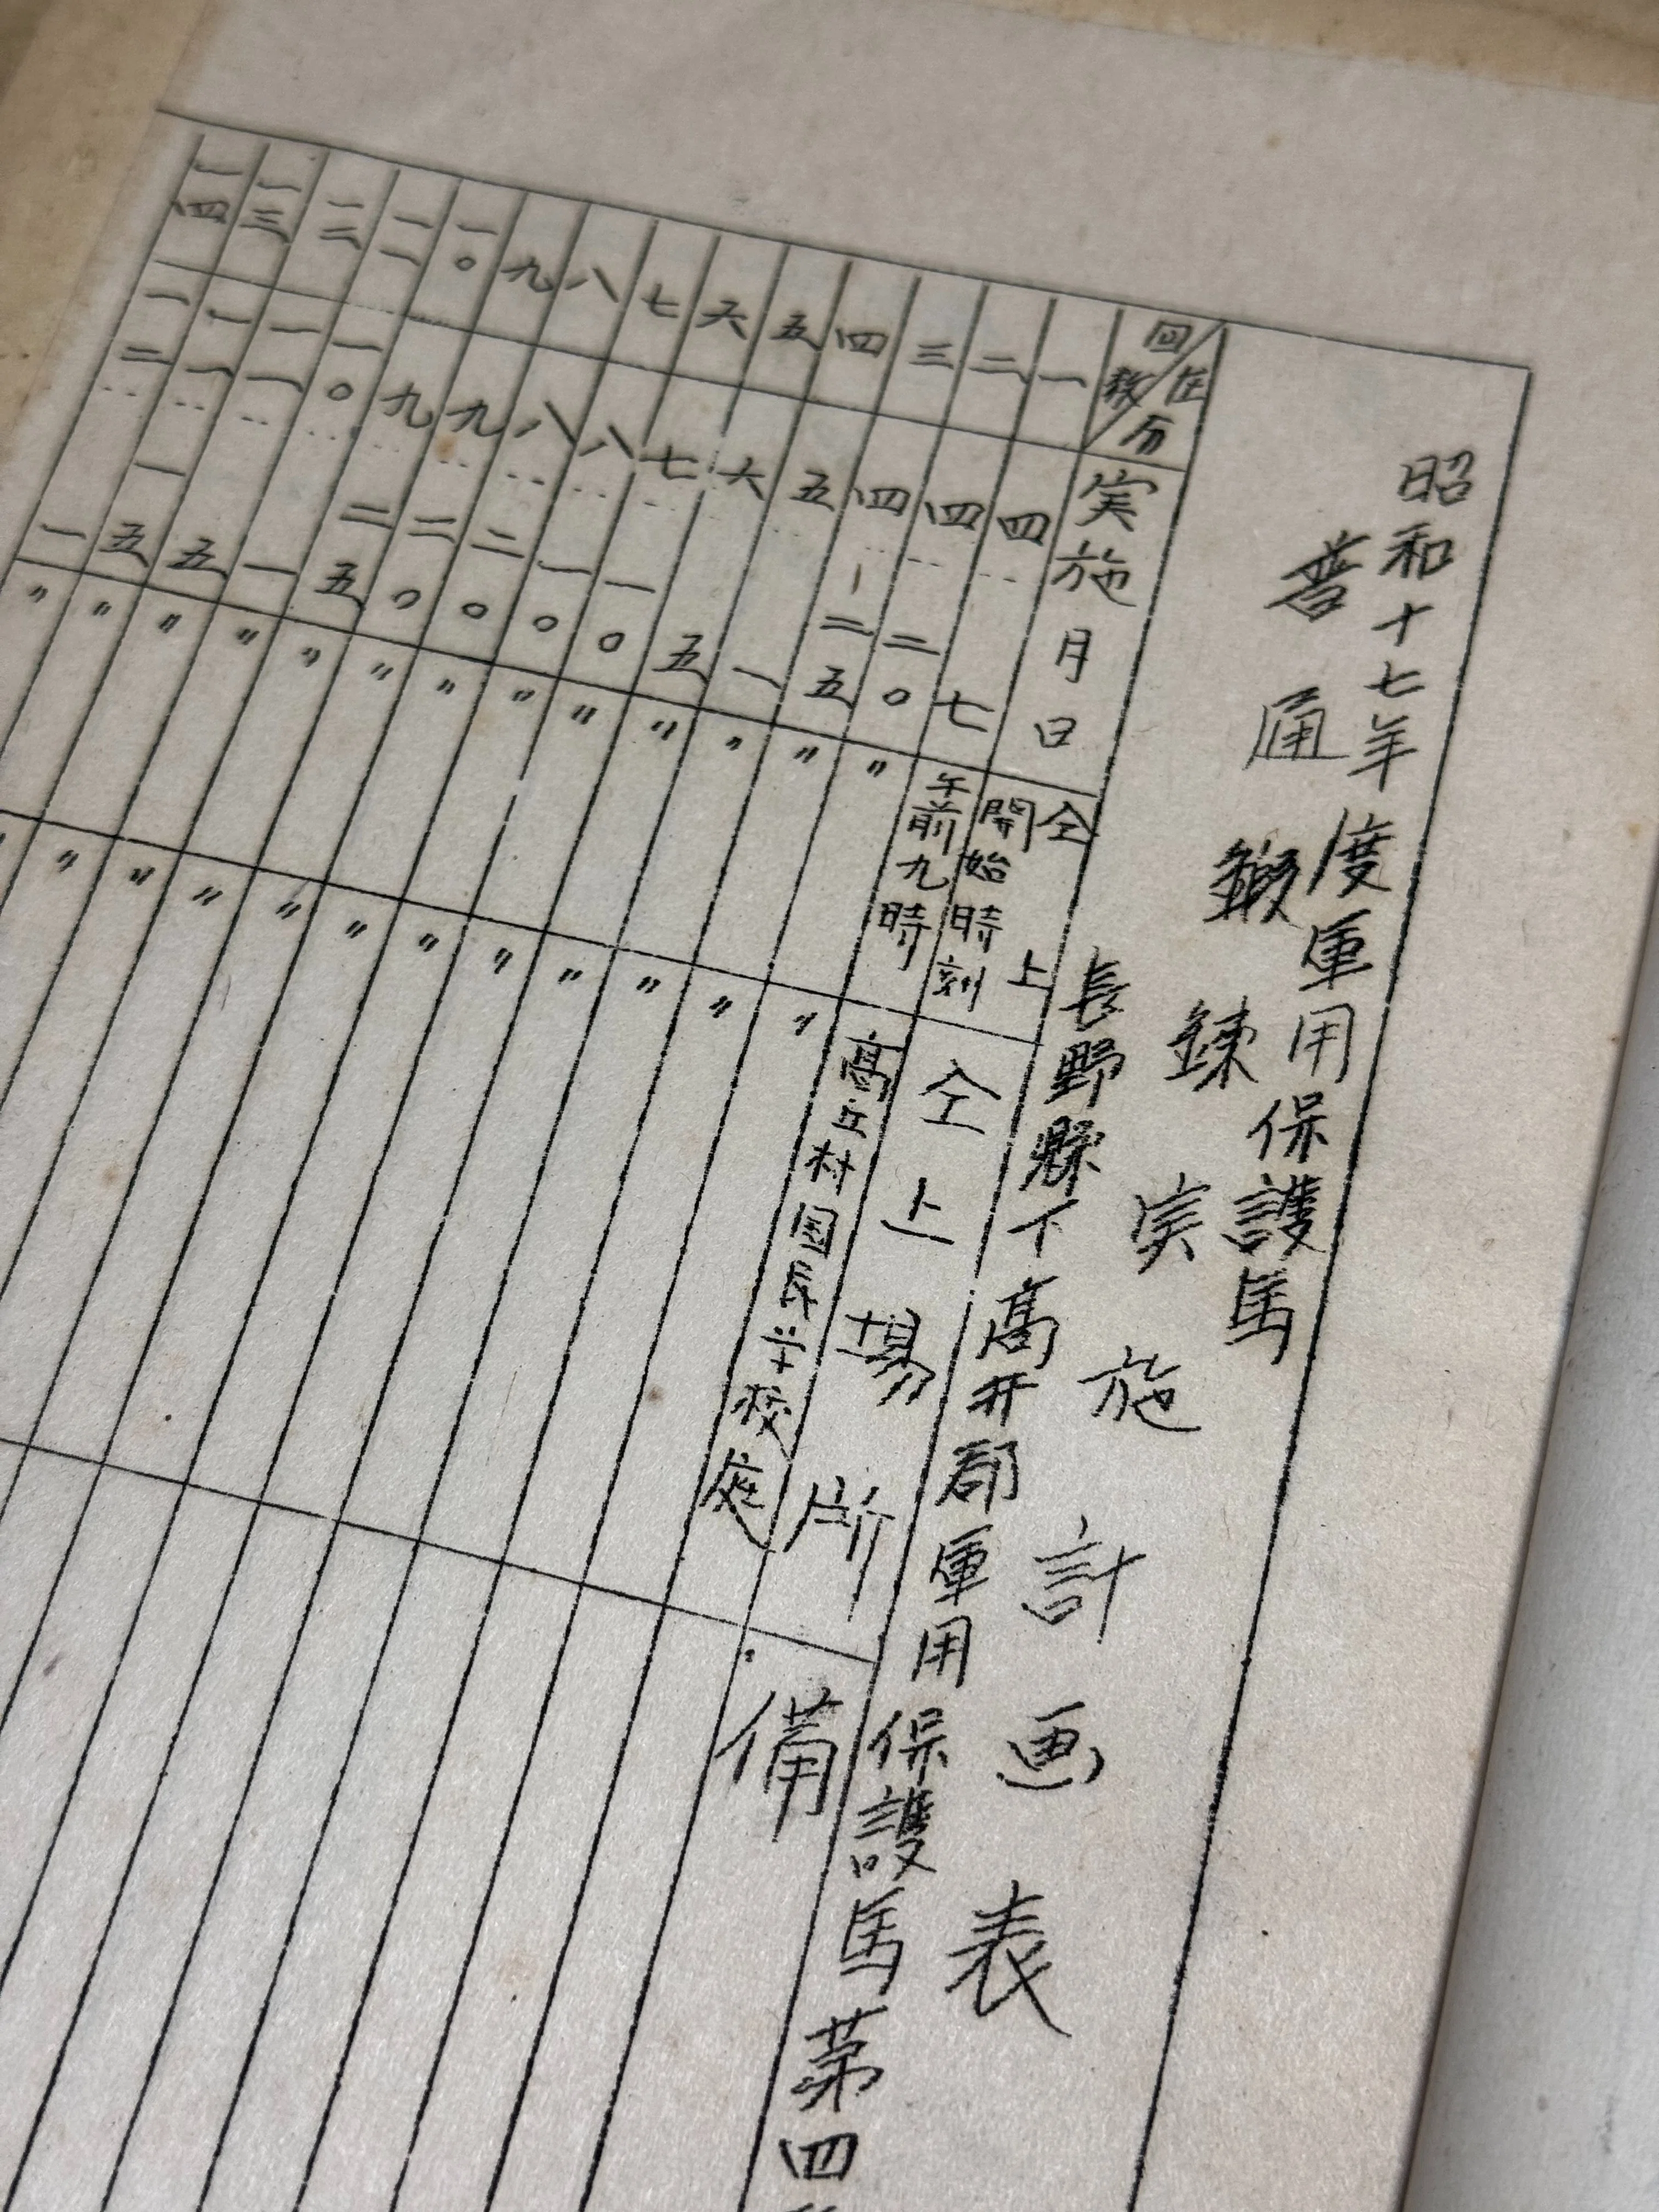 昭和十七年度軍用保護馬
普通鍛錬実施計画表
長野縣下高井郡軍用保護馬第四
区分
回数
実施月日
仝上
開始時刻
仝上場所
備
一 四 七 午前九時 高丘村国民学校庭
二 四 二〇 〃 〃
三 四 二五 〃 〃
四 五 一 〃 〃
五 六 五 〃 〃
六 七 一〇 〃 〃
七 八 一〇 〃 〃
八 八 二〇 〃 〃
九 九 二〇 〃 〃
一〇 九 二五 〃 〃
一一 一〇 一 〃 〃
一二 一一 五 〃 〃
一三 一一 一五 〃 〃
一四 一二 一 〃